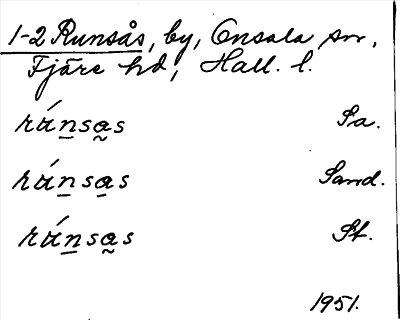 1-2 Runsås, by, Onsala sn,
Fjäre hd, Hall. l.
rʉ́n̲sa̰s Sa.
rʉ́n̲sa̲s Sand.
rʉ́n̲sa̰s St.
1951.